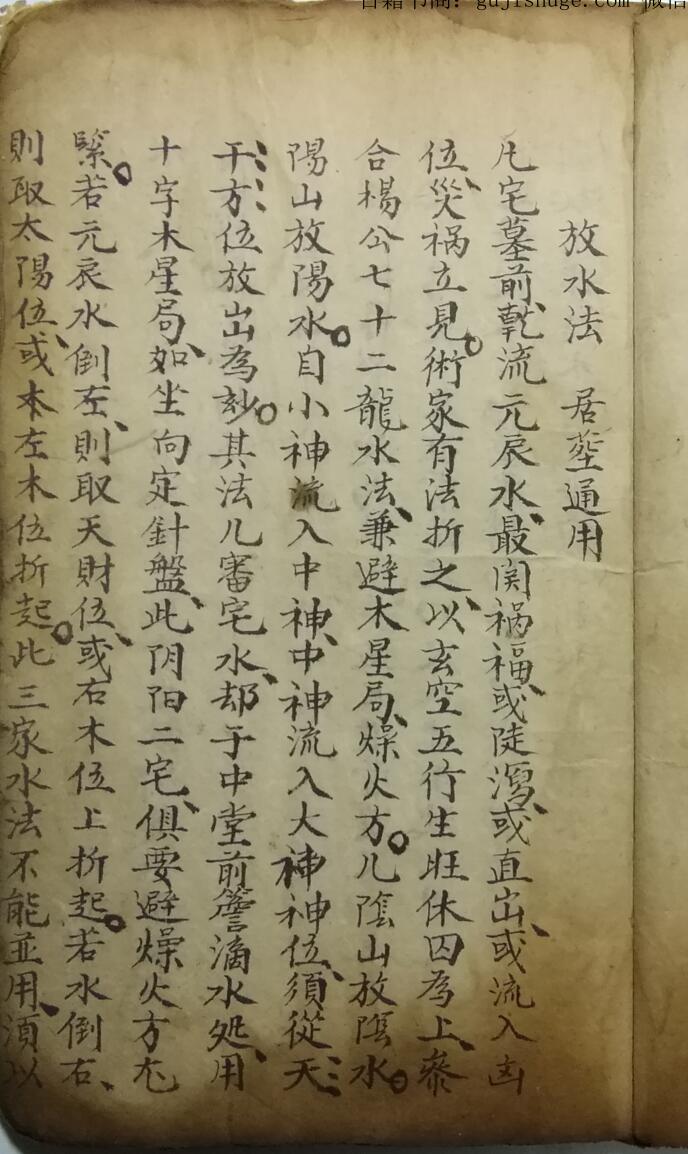 古籍书商：gujishuge.com 微信
放水法　居塋通用
凡宅墓前、乾流元辰水、最関祸福、或陡瀉、或直出、或流入凶
位、災禍立見。術家有法折之、以玄空五行生旺休囚為上、泰
合楊公七十二龍水法、兼避木星局、燥火方。凡陰山放陰水。
陽山放陽水。自小神流入中神、中神流入大神神位、須從天
干方位放出為妙。其法凡審宅水、却于中堂前簷滴水処、用
十字木星局、如坐向定針盤、此阴阳二宅、俱要避燥火方尤
緊。若元辰水倒左、則取天財位、或右木位上折起。若水倒右、
則取太陽位、或本左木位折起。此三家水法不能並用、須以